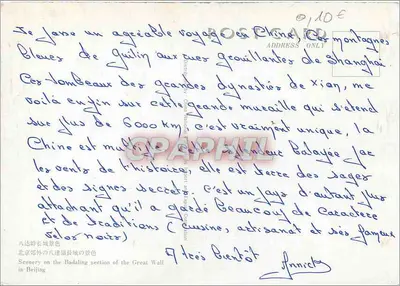 0,10€
POST CARD
ADDRESS ONLY
Je passe un agréable voyage en Chine, des montagnes
bleues de guilin aux rues grouillantes de Shanghai
Ces tombeaux des grandes dynasties de Xian, me
voilà enfin sur cette grande muraille qui s'étend
sur plus de 6000 km, c'est vraiment unique, la
Chine est balayée par
les vents de l'histoire, elle est terre des sages
et des signes secrets. c'est un pays d'autant plus
attachant qu'il a gardé beaucoup de caractère
et de traditions (cuisine, artisanat et ses fameux
vélos noirs)
A très bientôt
Annick
GRAPHIL
八达岭长城景色
Scenery on the Badaling section of the Great Wall
in Beijing